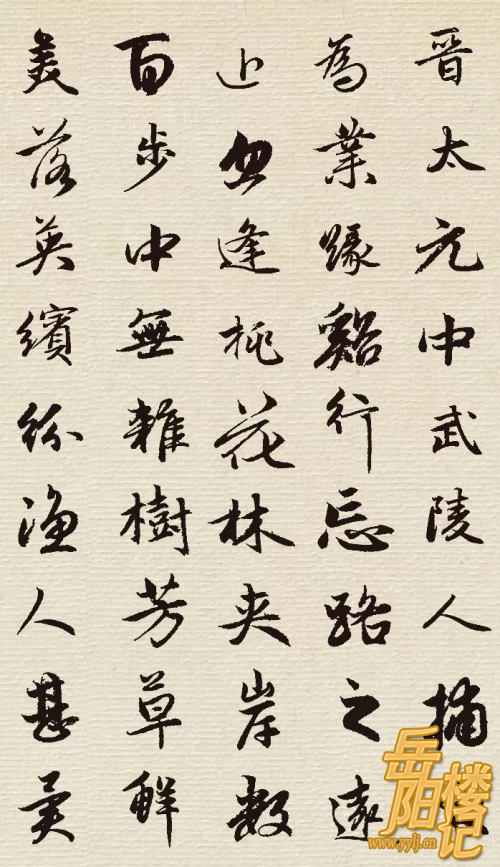 晋太元中武陵人捕
為業緣谿行忘路之遠
近忽逢桃花林夾岸數
百步中無雜樹芳草鮮
美落英繽紛漁人甚異
岳阳楼记
www.yylj.cn